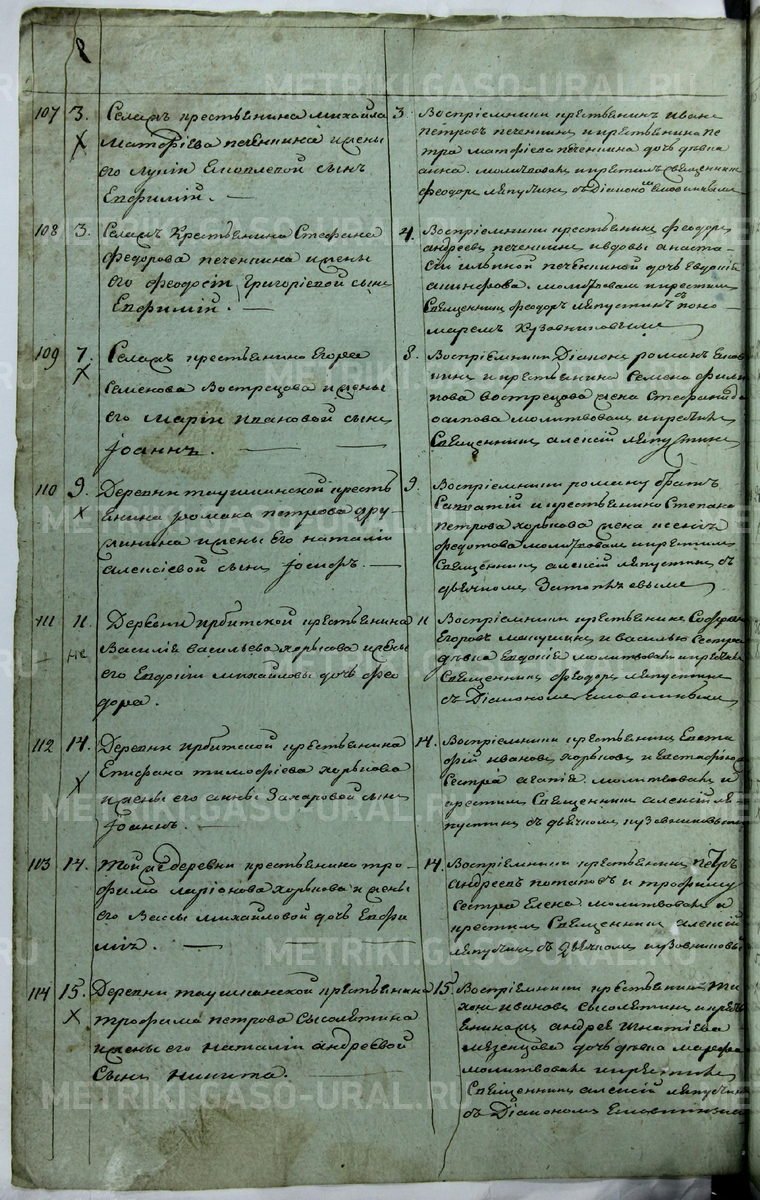 8
107 3. Селамъ крестьянина Михаила
Матфіева Печенкина и жены
его Лукіи сынъ
Евфимій.
3 Воспріемники крестьянинъ Иванъ
Петровъ Печенкинъ и крестьянина Пе
тра Матфіева Печенкина дочь дѣвка
Анна. молитвовалъ и крестилъ Священникъ
Феодоръ Ляпустинъ съ Діакономъ
108 3. Селамъ Крестьянина Стефана
Федорова Печенкина и жены
его Феодосіи Григоріевой сынъ
Евфимій.
4. Воспріемники крестьянинъ Феодоръ
Андреевъ Печенкинъ и вдовы Анаста-
сіи Ильиной Печенкиной дочь Евдокія
молитвовалъ и крестилъ
Священникъ Феодоръ Ляпустинъ съ поно-
маремъ Кузовниковымъ
109 7. Селамъ крестьянина Егора
Семенова Вострецова и жены
его Маріи Ивановой сынъ
Іоаннъ.
8. Воспріемники Діаконъ Романъ
и крестьянина Семена Филип
пова Вострецова жена Стефанида
Осипова молитвовалъ и крестилъ
Священникъ Алексій Ляпустинъ
110 9. Деревни Таушканской кресть
янина Романа Петрова Дру-
жинина и жены Его Наталіи
Алексіевой сынъ Іосифъ.
9. Воспріемники Роману братъ
и крестьянина Степана
Петрова Хорькова жена Ксенія
Федотова молитвовалъ и крестилъ
Священникъ Алексій Ляпустинъ съ
дьячкомъ
111 11. Деревни Ирбитской крестьянина
не Василія Васильева Хорькова и жены
его Евдокіи Михайловы дочь Фео
дора.
11 Воспріемники крестьянинъ
Егоровъ и Василью сестра
дѣвка Евдокія молитвовалъ и крестилъ
Священникъ Феодоръ Ляпустинъ
съ Діакономъ
112 14. Деревни Ирбитской крестьянина
Епифана Тимофіева Хорькова
и жены его Анны Захаровой сынъ
Іоаннъ.
14. Воспріемники крестьянинъ Евста
фій Ивановъ Хорьковъ и
сестра Агапія. молитвовалъ и
крестилъ Священникъ Алексій Ля-
пустинъ съ дьячкомъ Кузовниковымъ
103 14. Той же деревни крестьянина Тро-
фима Ларіонова Хорькова и жены
его Вассы Михайловой дочь Евфи
мія.
14. Воспріемники крестьянинъ Петръ
Андреевъ Потаповъ и Трофиму
сестра Елена молитвовалъ и
крестилъ Священникъ Алексій
Ляпустинъ съ дьячкомъ Кузовниковымъ
114 15. Деревни Таушканской крестьянина
Трофима Петрова Сысолятина
и жены его Наталіи Андреевой
сынъ Никита.
15. Воспріемники крестьянинъ Ти
хонъ Ивановъ Сысолятинъ и кресть
янина Андрея Игнатіева
Мезенцова дочь дѣвка Марфа
молитвовалъ и крестилъ
Священникъ Алексій Ляпустинъ
съ Діакономъ
METRIKI.GASO-URAL.RU